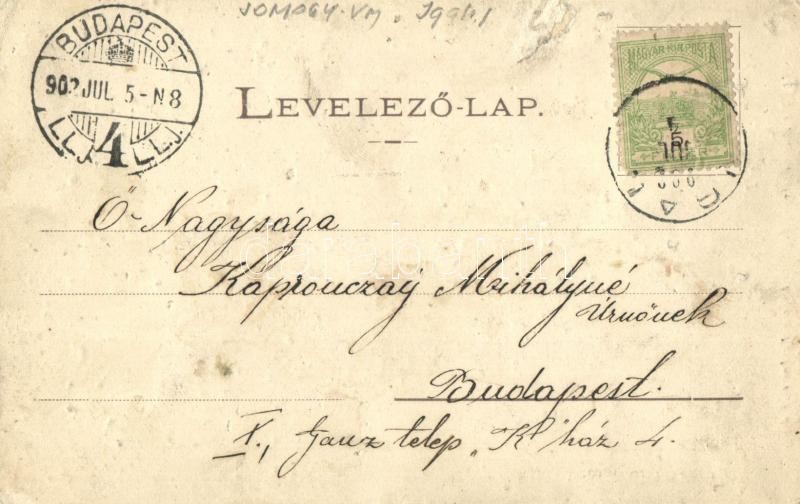 SOMOGY-VM. Igal
BUDAPEST
902 JUL 5-N8
4
LEVELEZŐ-LAP.
MAGYAR KIR. POSTA
IGAL
Ő-Nagysága
Kapronczay Mihályné
Úrnőnek
Budapest.
X., Ganz telep "K" ház 4.